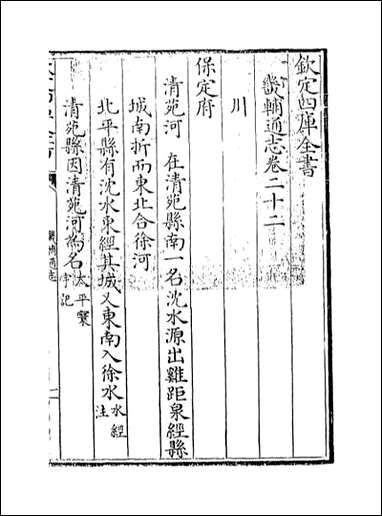 欽定四庫全書
畿輔通志卷二十二
川
保定府
清苑河 在清苑縣南一名沈水源出雞距泉經縣
城南折而東北合徐河
北平縣有沈水東經其城又東南入徐水水經注
清苑縣因清苑河為名太平寰宇記